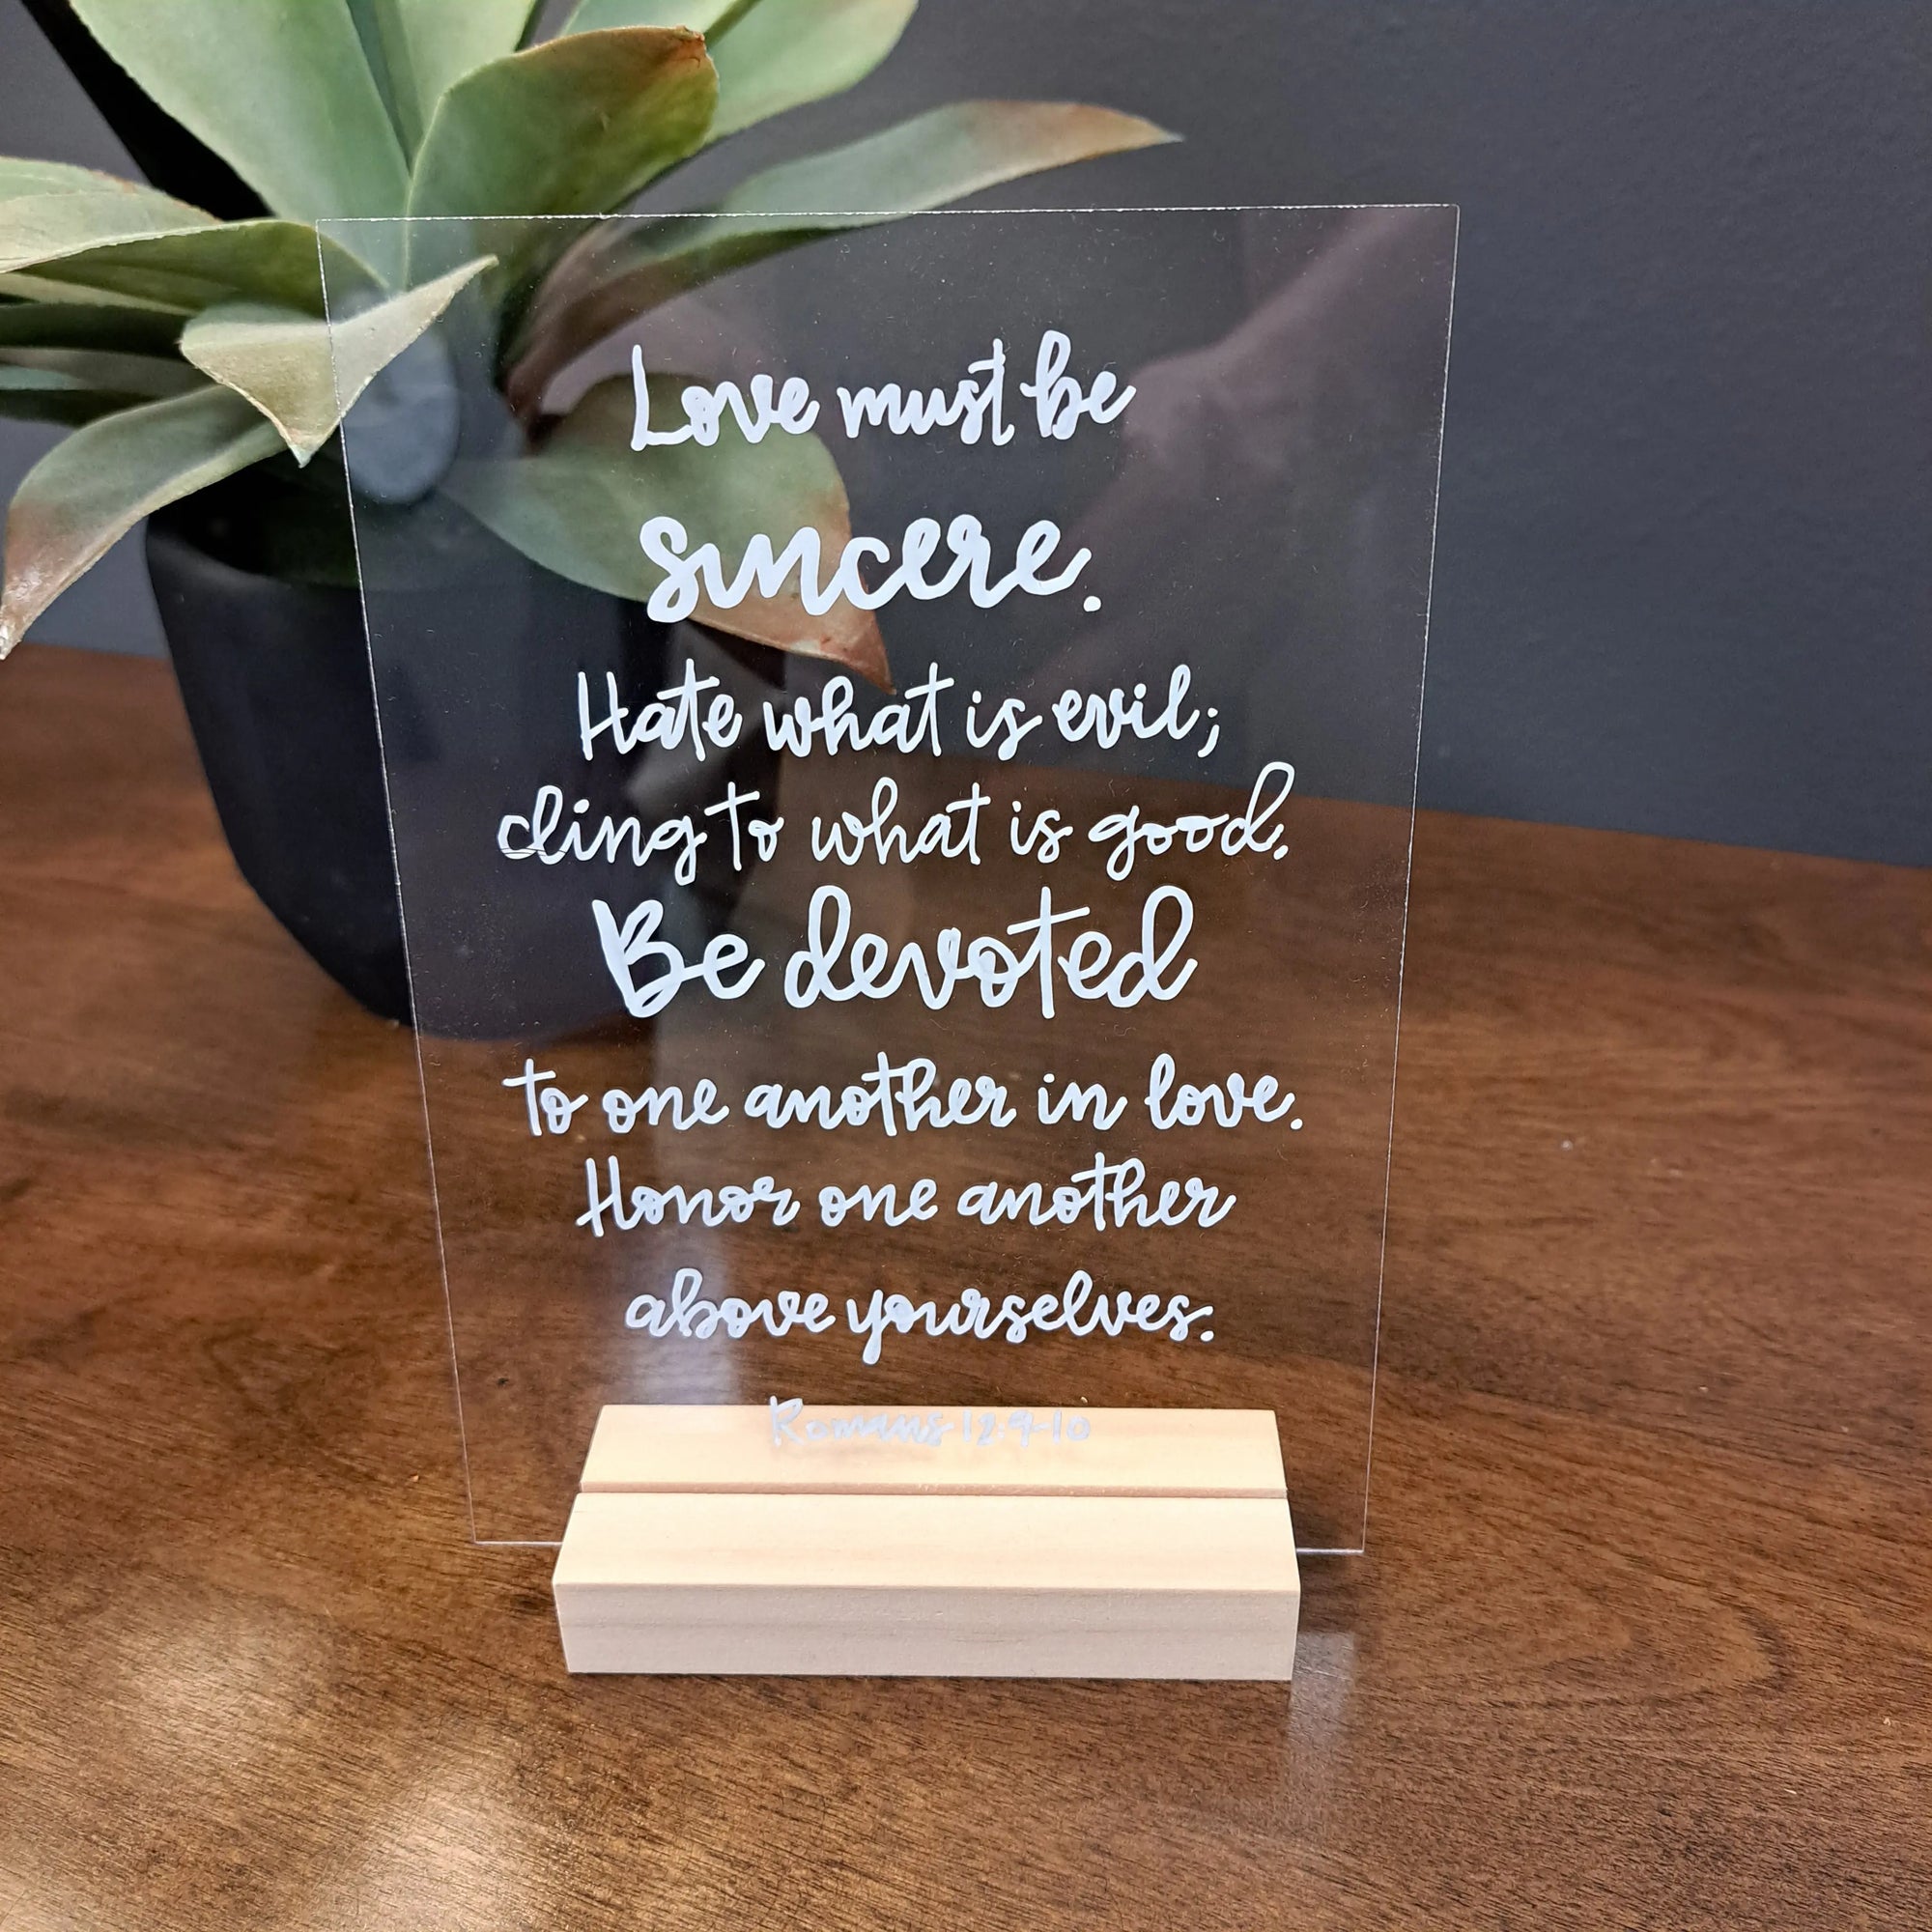 Love must be
sincere.
Hate what is evil;
cling to what is good.
Be devoted
to one another in love.
Honor one another
above yourselves.
Romans 12:9-10